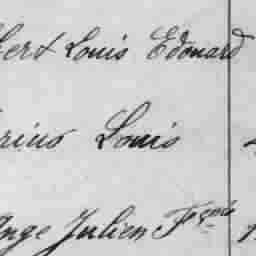 bert Louis Edouard
rius Louis
Ange Julien Fçois